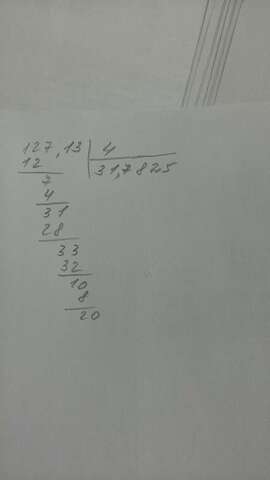 127,13 4
12 31,7825
7
4
31
28
33
32
10
8
20